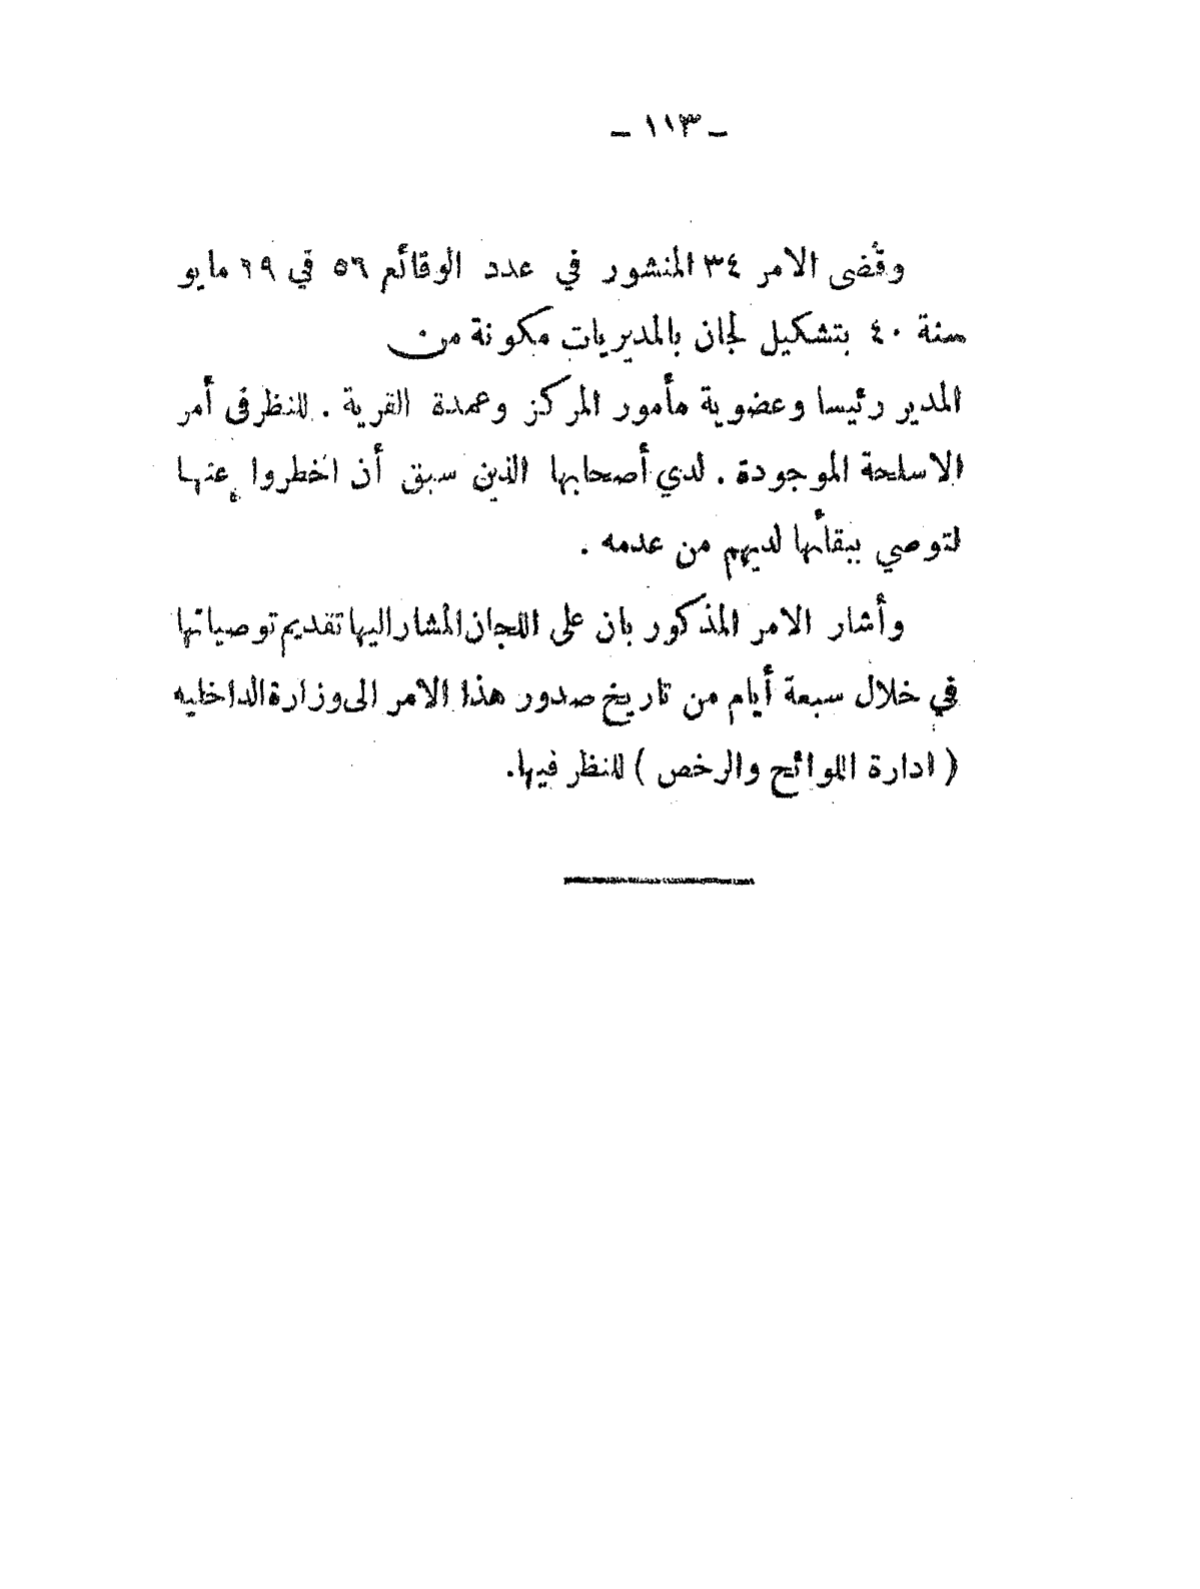 – ١١٣ –
وقضى الامر ٣٤ المنشور في عدد الوقائع ٥٦ في ٢٩ مايو
سنة ٤٠ بتشكيل لجان بالمديريات مكونة من
المدير رئيسا وعضوية مأمور المركز وعمدة القرية . للنظر فى أمر
الاسلحة الموجودة . لدي أصحابها الذين سبق أن اخطروا عنها
لتوصي ببقائها لديهم من عدمه .
وأشار الامر المذكور بان على اللجان المشار اليها تقديم توصياتها
في خلال سبعة أيام من تاريخ صدور هذا الامر الى وزارة الداخليه
( ادارة اللوائح والرخص ) للنظر فيها.